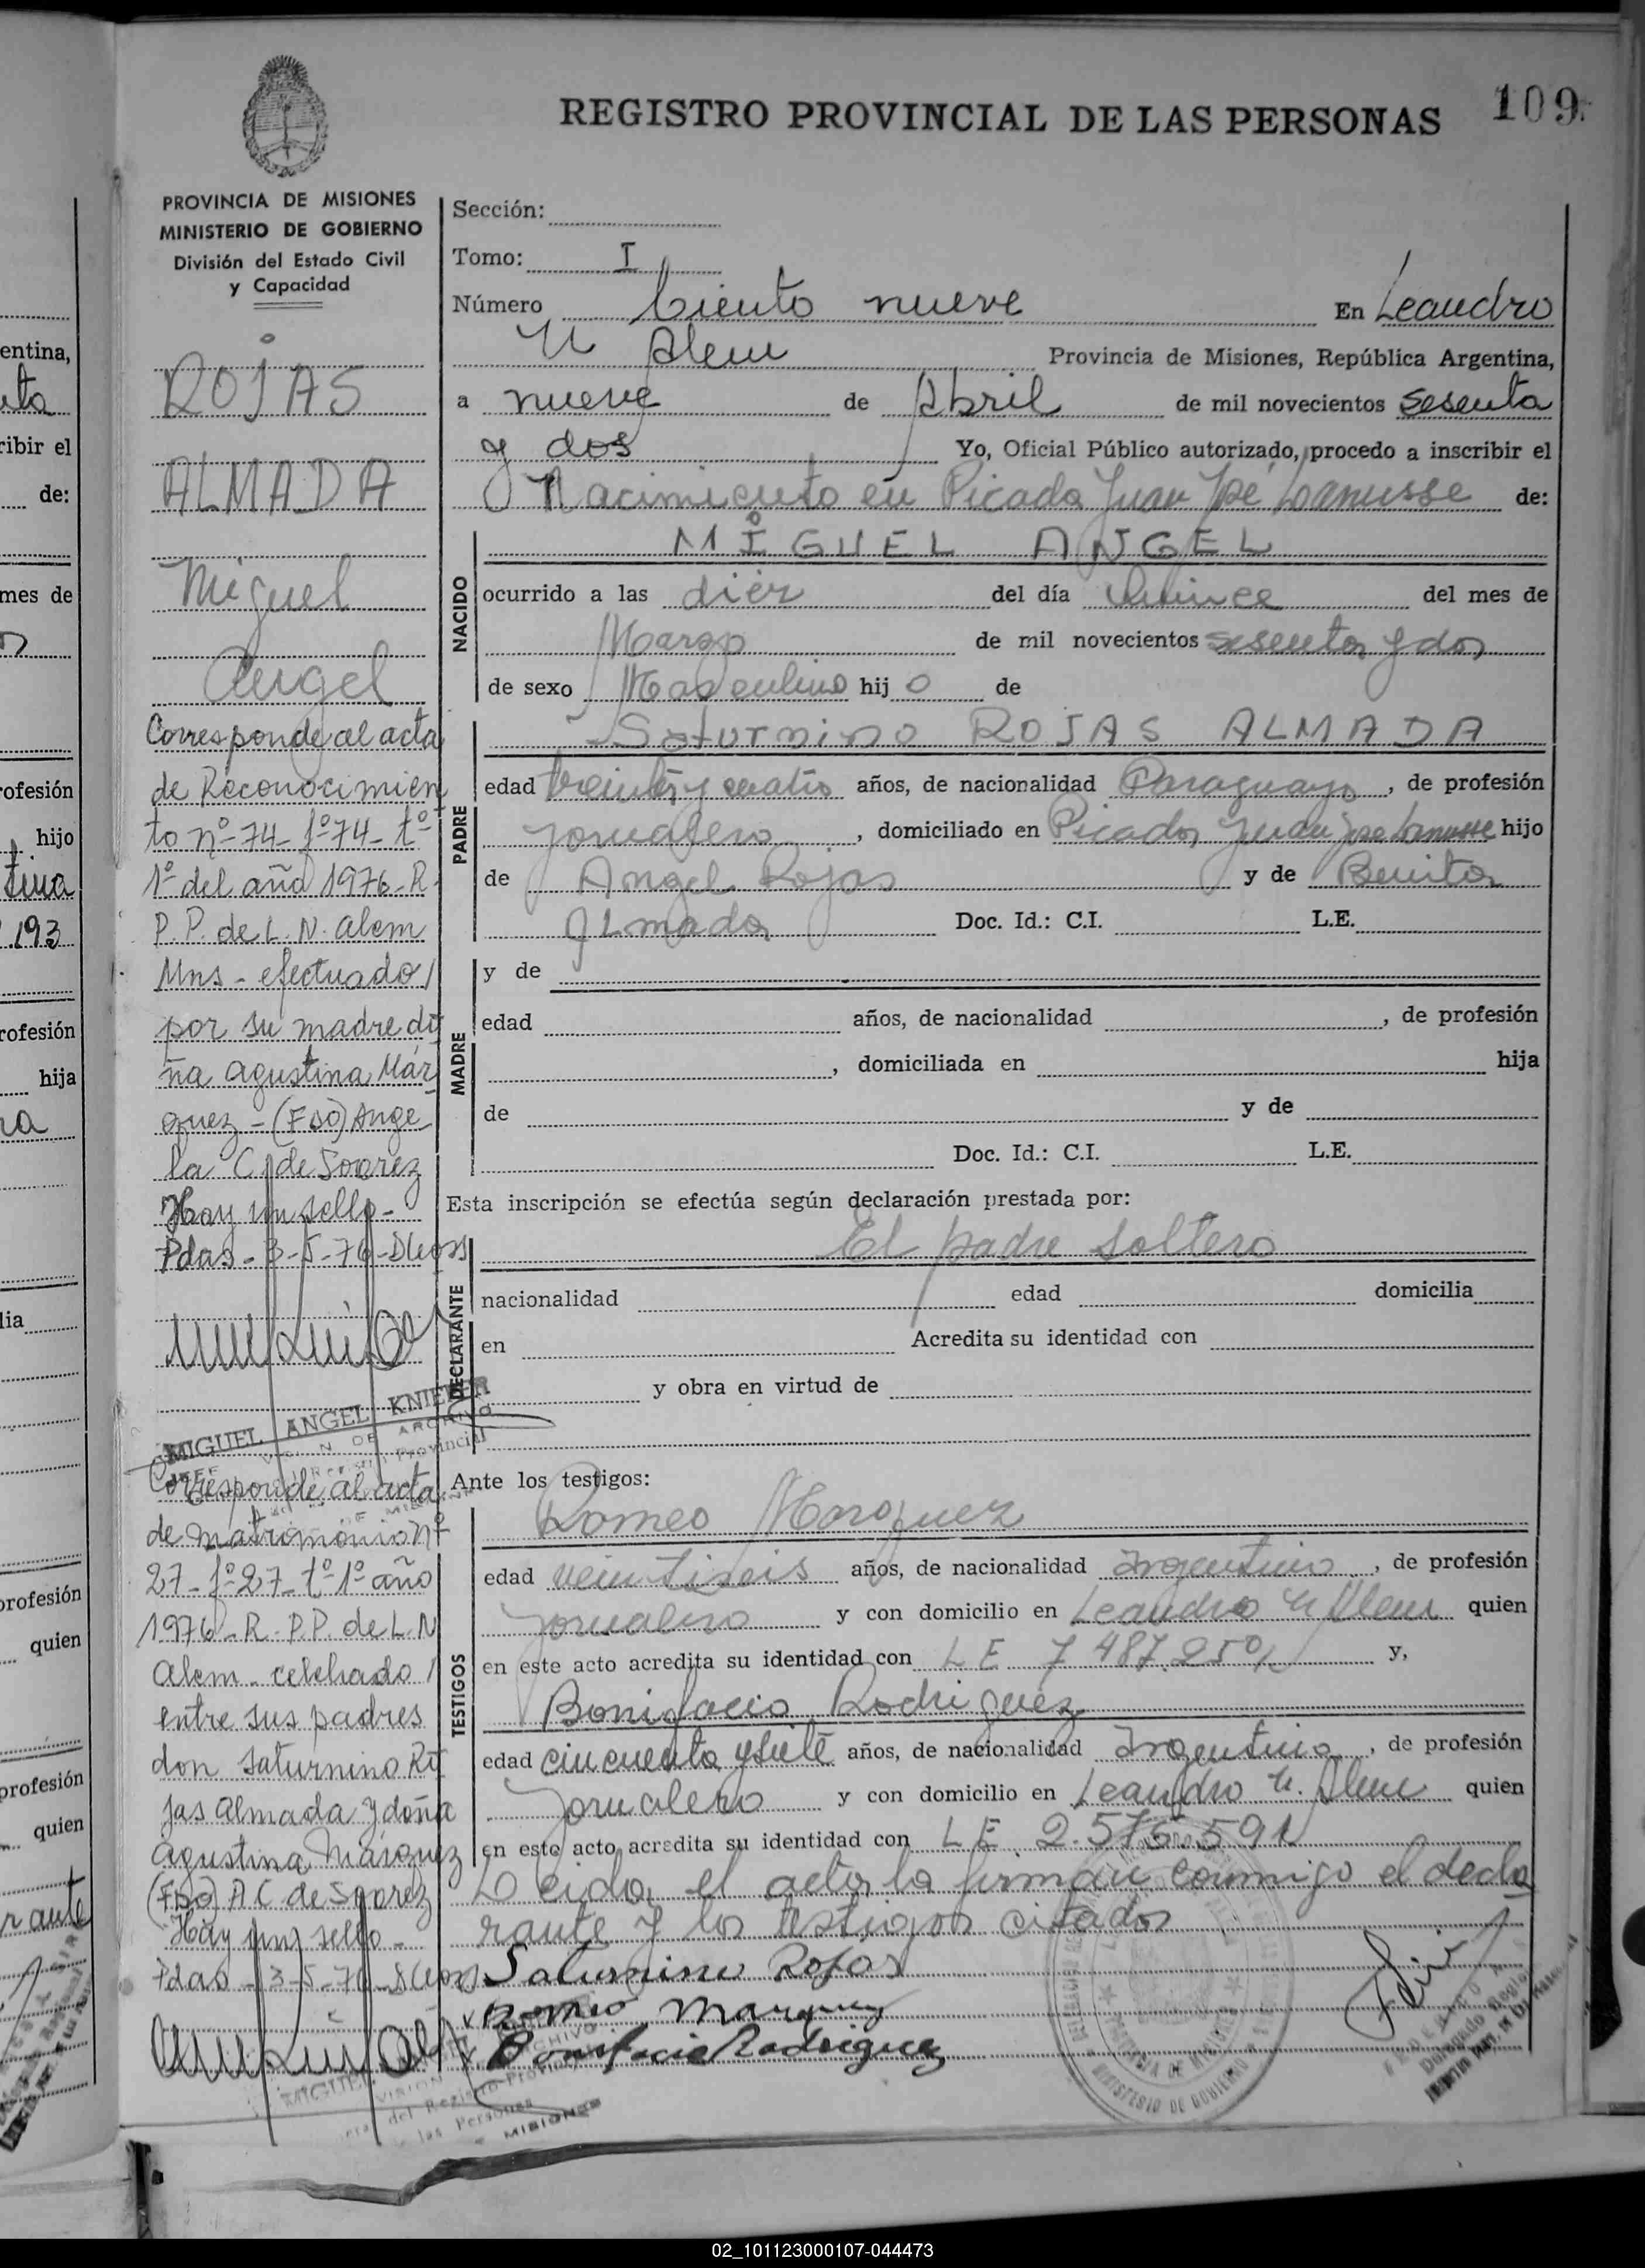 REGISTRO PROVINCIAL DE LAS PERSONAS 109
PROVINCIA DE MISIONES
MINISTERIO DE GOBIERNO
División del Estado Civil
y Capacidad
ROJAS
ALMADA
Miguel
Angel
Corresponde al acta
de Reconocimien
to nº 74 - fº 74 - tº
1º del año 1976 - R.
P. P. de L. N. Alem
Mns - efectuado /
por su madre do
ña Agustina Már
quez - (Fdo) Ange
la C. de Soarez
Hay un sello -
Pdas - 3-5-76 -
MIGUEL ANGEL KNIEPER
Corresponde al acta
de matrimonio nº
27 - fº 27 - tº 1º año
1976 - R. P. P. de L. N
Alem - celebrado /
entre sus padres
don Saturnino Ro
jas Almada y doña
Agustina Márquez
(Fdo) A. C. de Soarez
Hay un sello -
Pdas - 3-5-76 -
Sección:
Tomo: I
Número Ciento nueve En Leandro
N Alem Provincia de Misiones, República Argentina,
a nueve de Abril de mil novecientos sesenta
y dos Yo, Oficial Público autorizado, procedo a inscribir el
Nacimiento en Picada Juan José Lanusse de:
NACIDO
MIGUEL ANGEL
ocurrido a las diez del día quince del mes de
Marzo de mil novecientos sesenta y dos
de sexo Masculino hijo de
PADRE
Saturnino ROJAS ALMADA
edad treinta y cuatro años, de nacionalidad Paraguayo, de profesión
jornalero, domiciliado en Picada Juan José Lanusse hijo
de Angel Rojas y de Benita
Almada Doc. Id.: C.I. L.E.
MADRE
y de
edad años, de nacionalidad , de profesión
, domiciliada en hija
de y de
Doc. Id.: C.I. L.E.
Esta inscripción se efectúa según declaración prestada por:
DECLARANTE
El padre soltero
nacionalidad edad domicilia
en Acredita su identidad con
y obra en virtud de
Ante los testigos:
TESTIGOS
Romeo Marquez
edad veintiseis años, de nacionalidad Argentino, de profesión
jornalero y con domicilio en Leandro N Alem quien
en este acto acredita su identidad con LE 7 487.250 y,
Bonifacio Rodriguez
edad cincuenta y siete años, de nacionalidad Argentino, de profesión
jornalero y con domicilio en Leandro N. Alem quien
en este acto acredita su identidad con LE 2.575.591
Leida el acta la firman conmigo el decla
rante y los testigos citados
Saturnino Rojas
Romeo Marquez
Bonifacio Rodriguez
02_101123000107-044473